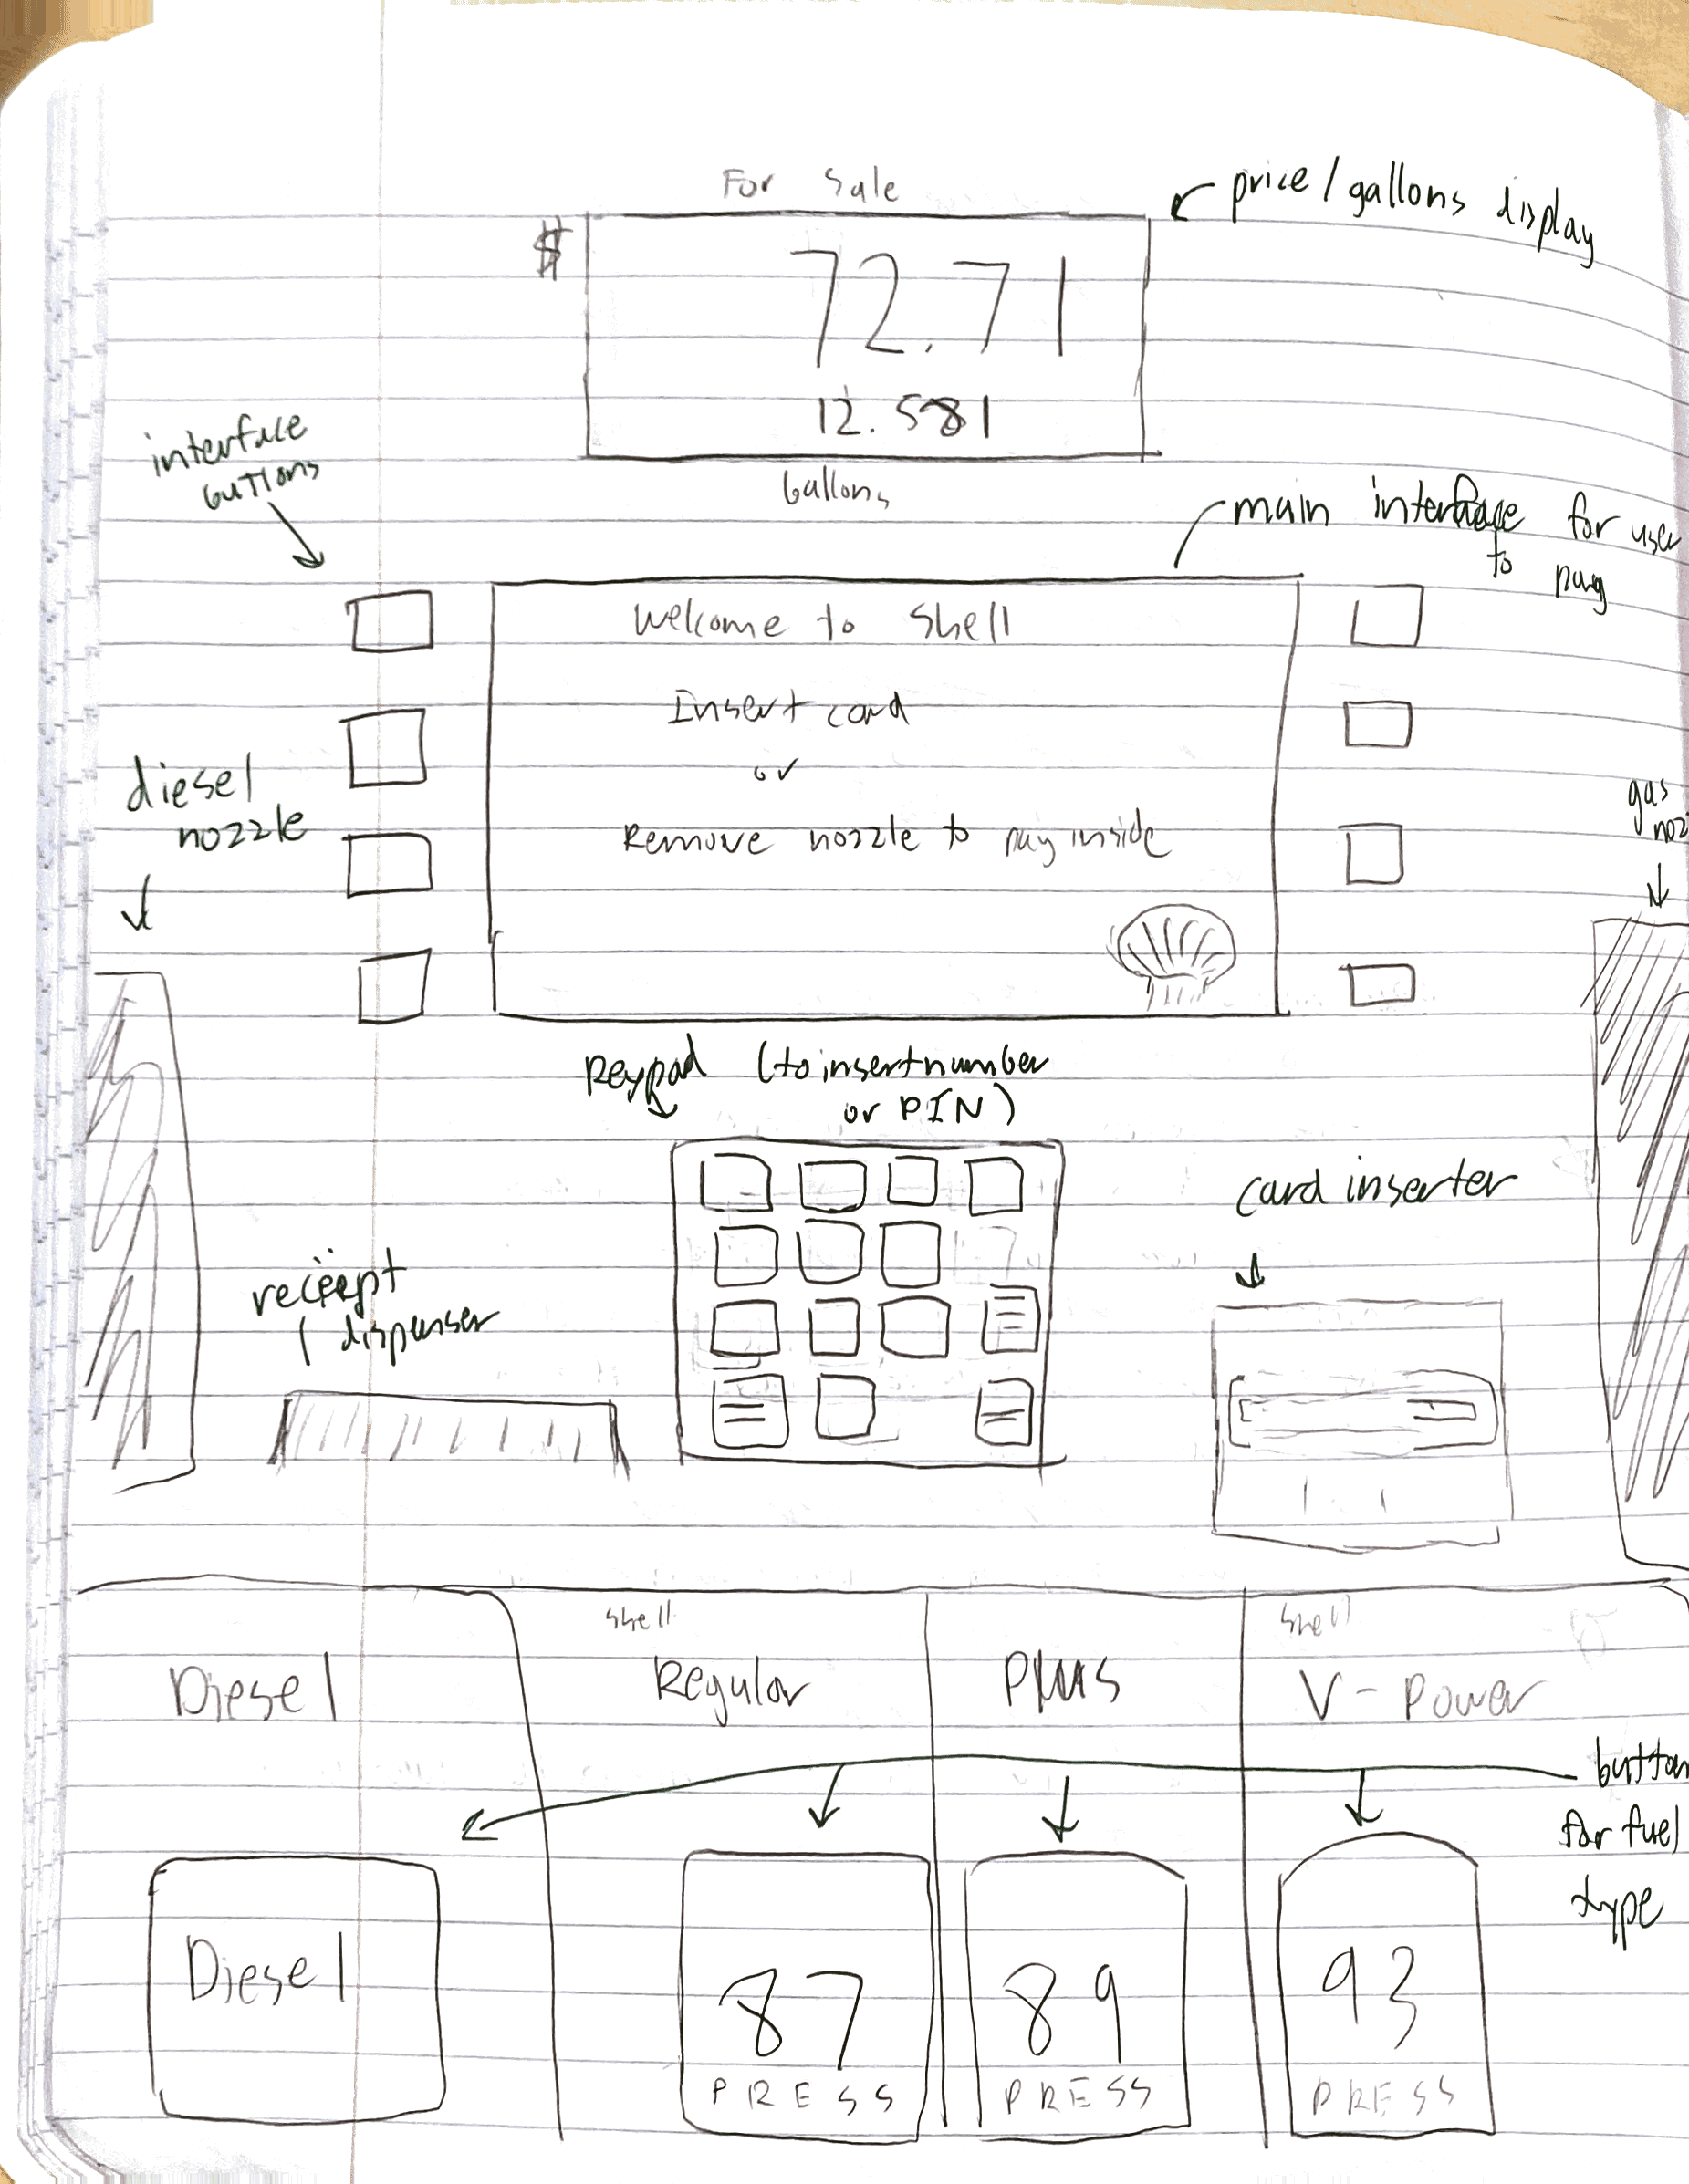 For Sale
price/gallons display
$
72.71
12.581
Gallons
interface
buttons
main interface for user
to pay
Welcome to Shell
Insert card
or
Remove nozzle to pay inside
diesel
nozzle
gas
noz
keypad (to insert number
or PIN)
card inserter
receipt
dispenser
Shell
Shell
Diesel
Regular
Plus
V-Power
button
for fuel
type
Diesel
87
PRESS
89
PRESS
93
PRESS